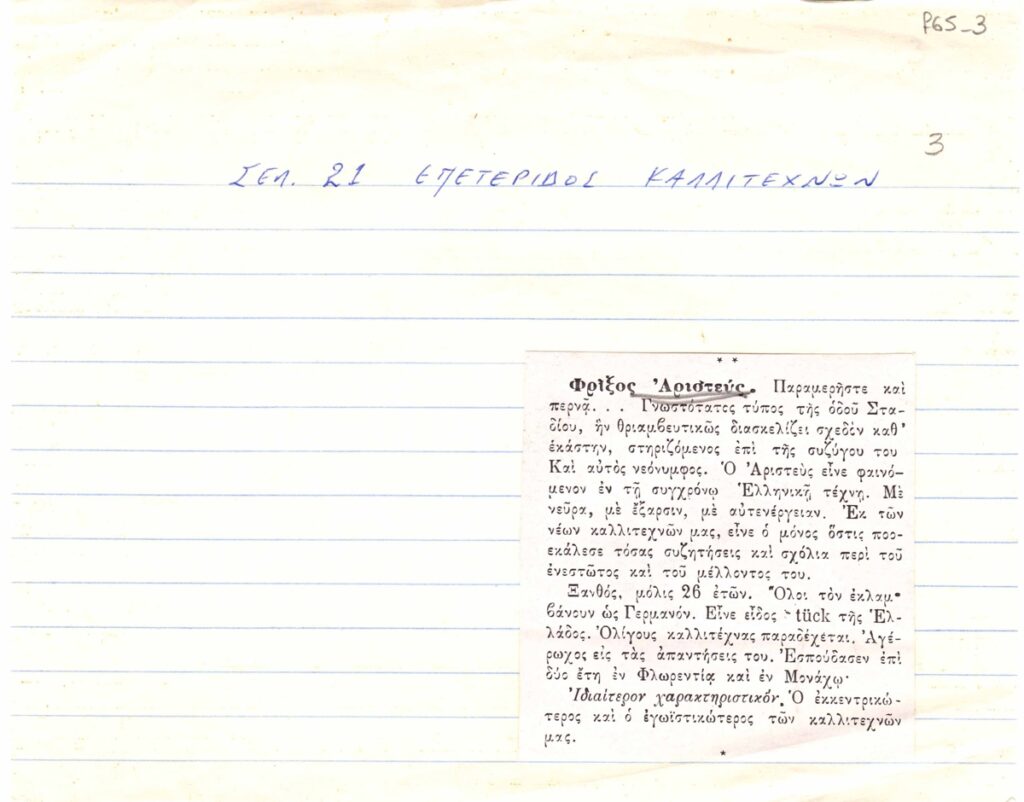 P65_3
3
ΣΕΛ. 21 ΕΠΕΤΕΡΙΔΟΣ ΚΑΛΛΙΤΕΧΝΩΝ
* *
Φρῖξος Ἀριστεύς. Παραμερῆστε καὶ
περνᾷ... Γνωστότατος τύπος τῆς ὁδοῦ Στα-
δίου, ἣν θριαμβευτικῶς διασκελίζει σχεδὸν καθ'
ἑκάστην, στηριζόμενος ἐπὶ τῆς συζύγου του
Καὶ αὐτὸς νεόνυμφος. Ὁ Ἀριστεὺς εἶνε φαινό-
μενον ἐν τῇ συγχρόνῳ Ἑλληνικῇ τέχνῃ. Μὲ
νεῦρα, μὲ ἔξαρσιν, μὲ αὐτενέργειαν. Ἐκ τῶν
νέων καλλιτεχνῶν μας, εἶνε ὁ μόνος ὅστις προ-
εκάλεσε τόσας συζητήσεις καὶ σχόλια περὶ τοῦ
ἐνεστῶτος καὶ τοῦ μέλλοντος του.
Ξανθός, μόλις 26 ἐτῶν. Ὅλοι τὸν ἐκλαμ-
βάνουν ὡς Γερμανόν. Εἶνε εἶδος tück τῆς Ἑλ-
λάδος. Ὀλίγους καλλιτέχνας παραδέχεται. Ἀγέ-
ρωχος εἰς τὰς ἀπαντήσεις του. Ἐσπούδασεν ἐπὶ
δύο ἔτη ἐν Φλωρεντίᾳ καὶ ἐν Μονάχῳ·
Ἰδιαίτερον χαρακτηριστικόν. Ὁ ἐκκεντρικώ-
τερος καὶ ὁ ἐγωϊστικώτερος τῶν καλλιτεχνῶν
μας.
*